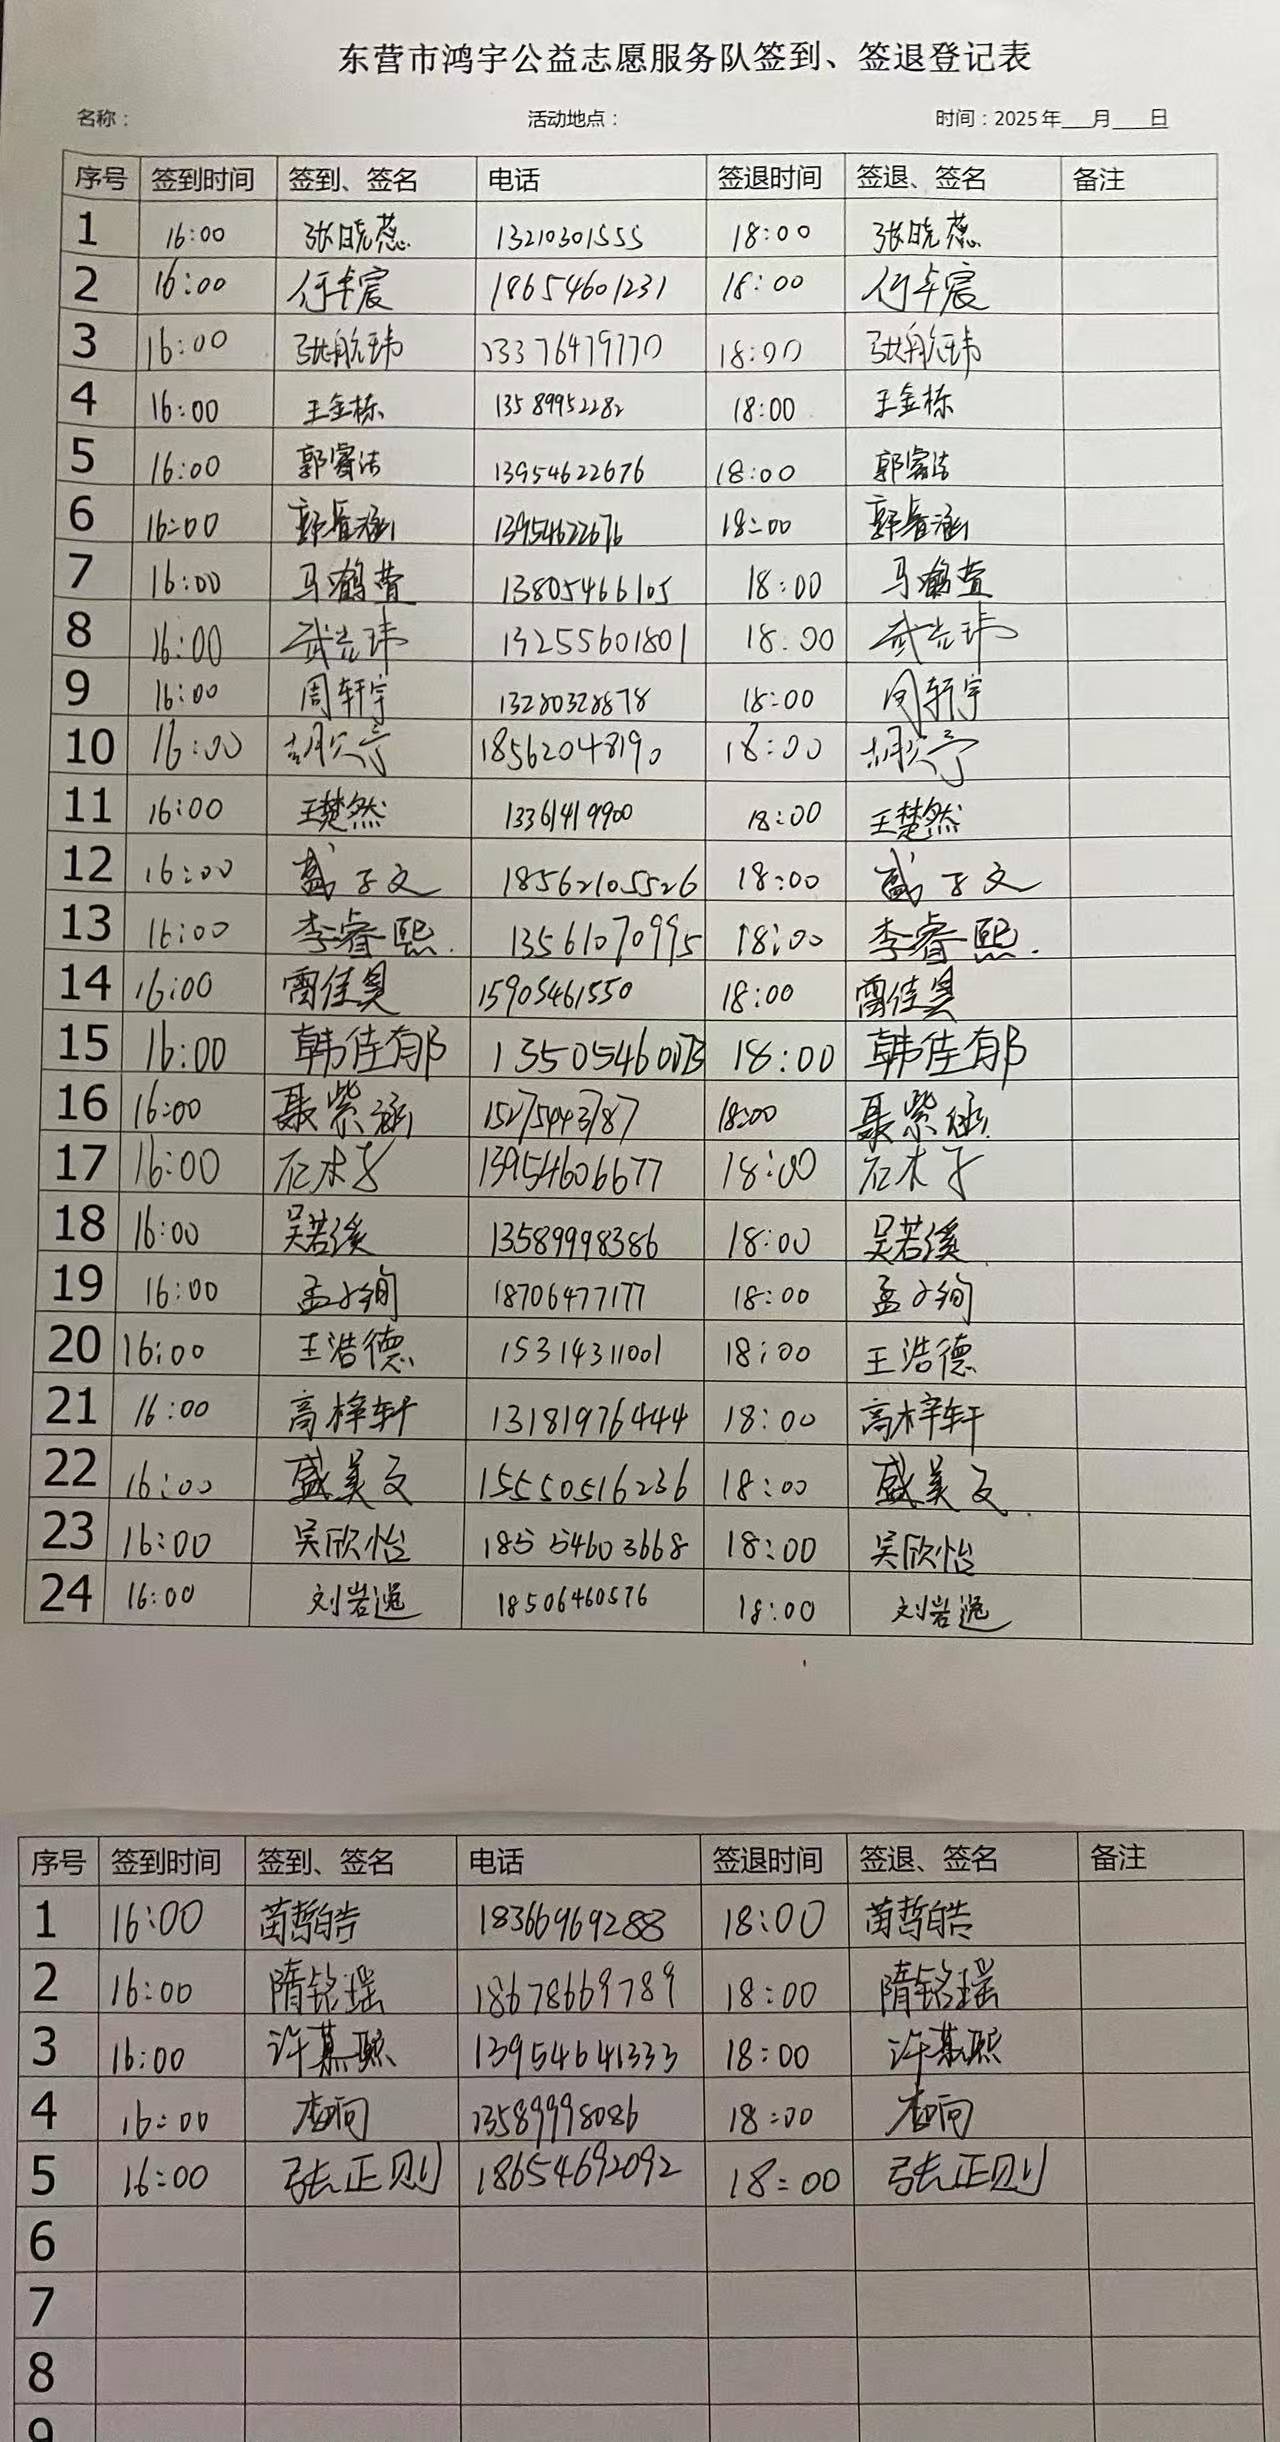 东营市鸿宇公益志愿服务队签到、签退登记表
名称： 活动地点： 时间：2025年___月___日
序号 签到时间 签到、签名 电话 签退时间 签退、签名 备注
1 16:00 张晓蕊 13210301555 18:00 张晓蕊
2 16:00 何卓宸 18654601231 18:00 何卓宸
3 16:00 张航玮 13376479770 18:00 张航玮
4 16:00 王金栋 13589952282 18:00 王金栋
5 16:00 郭睿洁 13954622676 18:00 郭睿洁
6 16:00 郭睿涵 13954622676 18:00 郭睿涵
7 16:00 马鹤萱 13805466105 18:00 马鹤萱
8 16:00 武光玮 13255601801 18:00 武光玮
9 16:00 周轩宇 13280328878 18:00 周轩宇
10 16:00 18562048190 18:00
11 16:00 王楚然 13361419900 18:00 王楚然
12 16:00 子文 18562105526 18:00 子文
13 16:00 李睿熙 13561070995 18:00 李睿熙
14 16:00 雷佳昊 15905461550 18:00 雷佳昊
15 16:00 韩佳郁 18:00 韩佳郁
16 16:00 聂紫涵 15275443787 18:00 聂紫涵
17 16:00 石木子 13954606677 18:00 石木子
18 16:00 吴若溪 13589998386 18:00 吴若溪
19 16:00 孟子绚 18706477177 18:00 孟子绚
20 16:00 王浩德 15314311001 18:00 王浩德
21 16:00 高梓轩 13181976444 18:00 高梓轩
22 16:00 盛美文 15550516236 18:00 盛美文
23 16:00 吴欣怡 18554603668 18:00 吴欣怡
24 16:00 刘岩逸 18506460576 18:00 刘岩逸
序号 签到时间 签到、签名 电话 签退时间 签退、签名 备注
1 16:00 苗哲皓 18366969288 18:00 苗哲皓
2 16:00 隋铭瑶 18678669789 18:00 隋铭瑶
3 16:00 许慕熙 13954641333 18:00 许慕熙
4 16:00 13589998086 18:00
5 16:00 张正则 18654692092 18:00 张正则
6
7
8
9